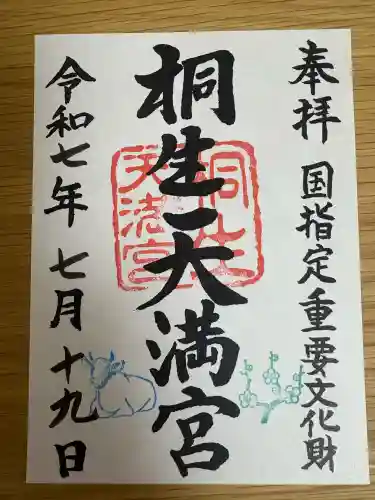 奉拝 国指定重要文化財
桐生天満宮
桐生天満宮
令和七年七月十九日